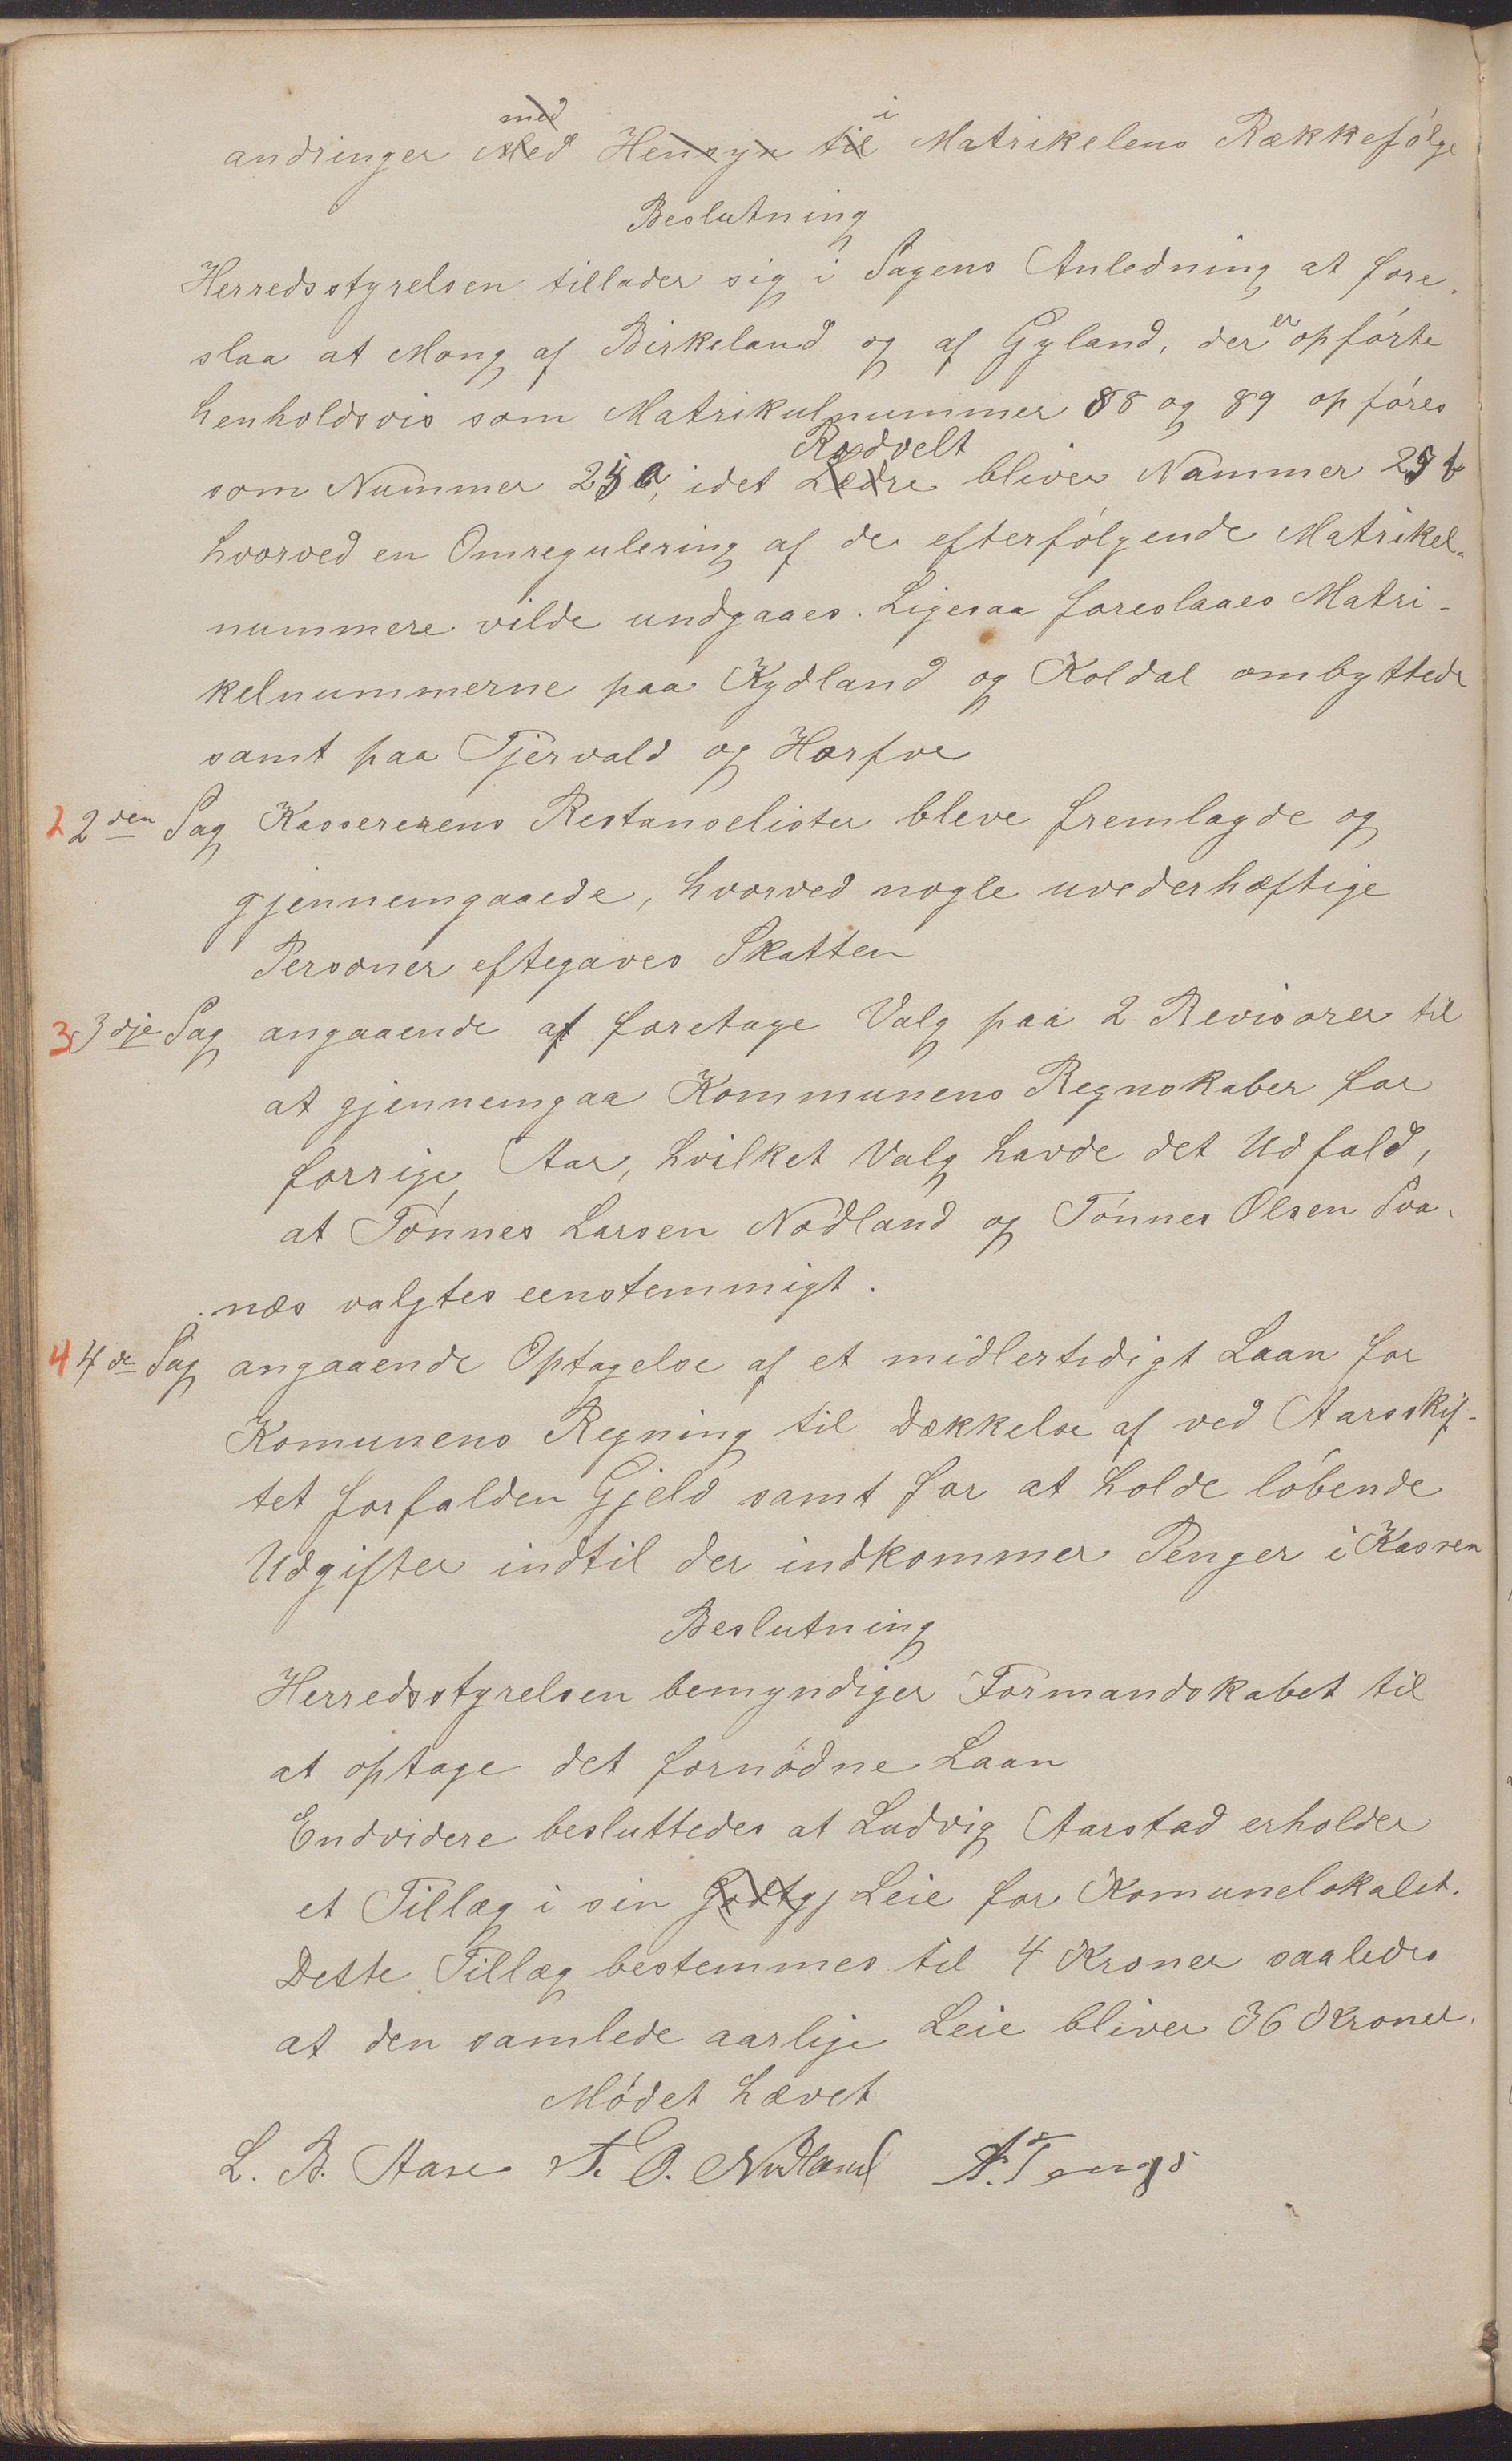 andringer med Hensyn til i Matrikelens Rækkefølge
Beslutning
Herredsstyrelsen tillader sig i Sagens Anledning at fore-
slaa at Mong af Birkeland og af Gyland, der er opførte
henholdsvis som Matrikulnummer 88 og 89 opføres
som Nummer 25a, idet Rødvelt bliver Nummer 25b
hvorved en Omregulering af de efterfølgende Matrikel-
nummere vilde undgaaes. Ligesaa foreslaaes Matri-
kelnummerne paa Kydland og Koldal ombyttede
samt paa Tjervald og Horfve
2 2den Sag Kassererens Restanselister bleve fremlagde og
gjennemgaaede, hvorved nogle uvederhæftige
Personer eftegaves Skatten
3 3dje Sag angaaende at foretage Valg paa 2 Revisorer til
at gjennemgaa Kommunens Regnskaber for
forrige Aar, hvilket Valg havde det Udfald,
at Tønnes Larsen Nodland og Tønnes Olsen Sva-
næs valgtes eenstemmigt.
4 4de Sag angaaende Optagelse af et midlertidigt Laan for
Komunens Regning til Dækkelse af ved Aarsskif-
tet forfalden Gjeld samt for at holde løbende
Udgifter indtil der indkommer Penger i Kassen
Beslutning
Herredsstyrelsen bemyndiger Formandskabet til
at optage det fornødne Laan
Endvidere besluttedes at Ludvig Aarstad erholder
et Tillæg i sin Godtgj Leie for Komunelokalet.
Dette Tillæg bestemmes til 4 Kroner saaledes
at den samlede aarlige Leie bliver 36 Kroner.
Mødet hævet
L. B. Aase T. O. Nodland A. Tengs